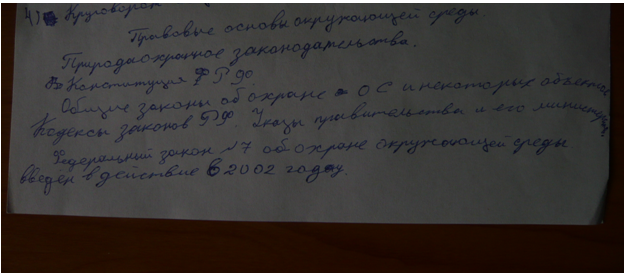 4) Круговорот
Правовые основы окружающей среды.
Природоохранное законодательства.
Конституция РФ
Общие законы об охране ОС и некоторые объекты
Кодексы законов РФ. Указы правительства и его министерств,
Федеральный закон №7 об охране окружающей среды
введен в действие в 2002 году.